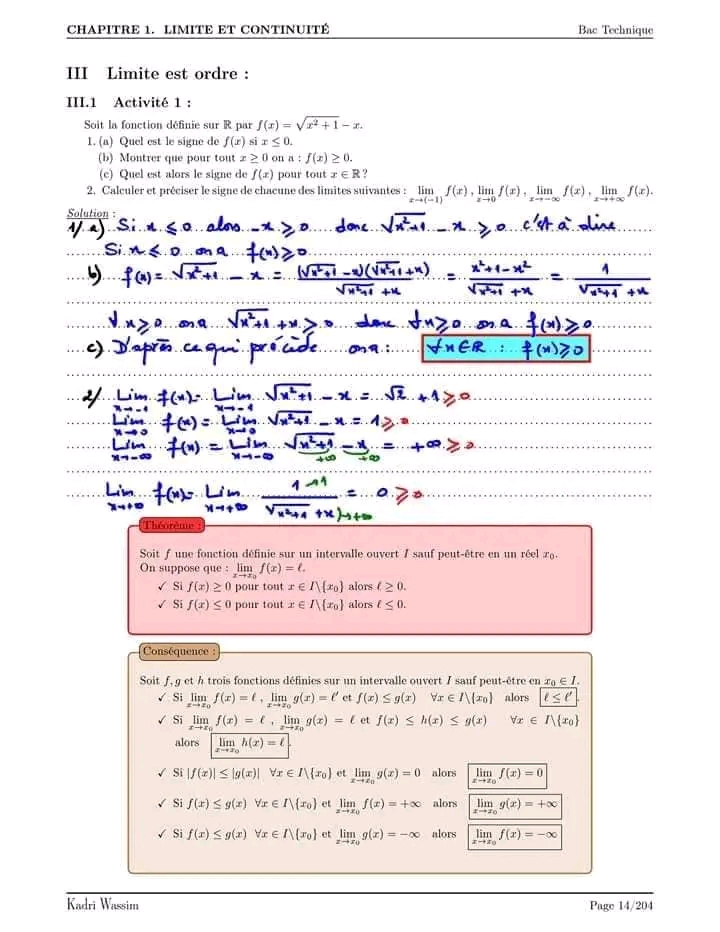 CHAPITRE 1. LIMITE ET CONTINUITÉ Bac Technique
III Limite est ordre :
III.1 Activité 1 :
Soit la fonction définie sur ℝ par f(x) = √(x² + 1) − x.
1. (a) Quel est le signe de f(x) si x ≤ 0.
(b) Montrer que pour tout x ≥ 0 on a : f(x) ≥ 0.
(c) Quel est alors le signe de f(x) pour tout x ∈ ℝ ?
2. Calculer et préciser le signe de chacune des limites suivantes : lim x→(−1) f(x) , lim x→0 f(x) , lim x→−∞ f(x) , lim x→+∞ f(x).
Solution :
1/ a) Si x ≤ 0 alors -x ≥ 0 donc √(x²+1) - x ≥ 0 c'est à dire
Si x ≤ 0 on a f(x) ≥ 0
b) f(x) = √(x²+1) - x = (√(x²+1) - x)(√(x²+1) + x) / (√(x²+1) + x) = (x²+1-x²) / (√(x²+1) + x) = 1 / (√(x²+1) + x)
∀x≥0 on a √(x²+1) + x > 0 donc ∀x≥0 on a f(x) ≥ 0
c) D'après ce qui précède on a : ∀x∈ℝ : f(x) ≥ 0
2/ Lim x→-1 f(x) = Lim x→-1 √(x²+1) - x = √2 + 1 ≥ 0
Lim x→0 f(x) = Lim x→0 √(x²+1) - x = 1 ≥ 0
Lim x→-∞ f(x) = Lim x→-∞ √(x²+1) - x = +∞ ≥ 0
+∞ +∞
Lim x→+∞ f(x) = Lim x→+∞ 1 →1 / (√(x²+1) + x) →+∞ = 0 ≥ 0
Théorème :
Soit f une fonction définie sur un intervalle ouvert I sauf peut-être en un réel x₀.
On suppose que : lim x→x₀ f(x) = ℓ.
✓ Si f(x) ≥ 0 pour tout x ∈ I\{x₀} alors ℓ ≥ 0.
✓ Si f(x) ≤ 0 pour tout x ∈ I\{x₀} alors ℓ ≤ 0.
Conséquence :
Soit f, g et h trois fonctions définies sur un intervalle ouvert I sauf peut-être en x₀ ∈ I.
✓ Si lim x→x₀ f(x) = ℓ , lim x→x₀ g(x) = ℓ′ et f(x) ≤ g(x) ∀x ∈ I\{x₀} alors ℓ ≤ ℓ′.
✓ Si lim x→x₀ f(x) = ℓ , lim x→x₀ g(x) = ℓ et f(x) ≤ h(x) ≤ g(x) ∀x ∈ I\{x₀}
alors lim x→x₀ h(x) = ℓ.
✓ Si |f(x)| ≤ |g(x)| ∀x ∈ I\{x₀} et lim x→x₀ g(x) = 0 alors lim x→x₀ f(x) = 0
✓ Si f(x) ≤ g(x) ∀x ∈ I\{x₀} et lim x→x₀ f(x) = +∞ alors lim x→x₀ g(x) = +∞
✓ Si f(x) ≤ g(x) ∀x ∈ I\{x₀} et lim x→x₀ g(x) = −∞ alors lim x→x₀ f(x) = −∞
Kadri Wassim Page 14/204